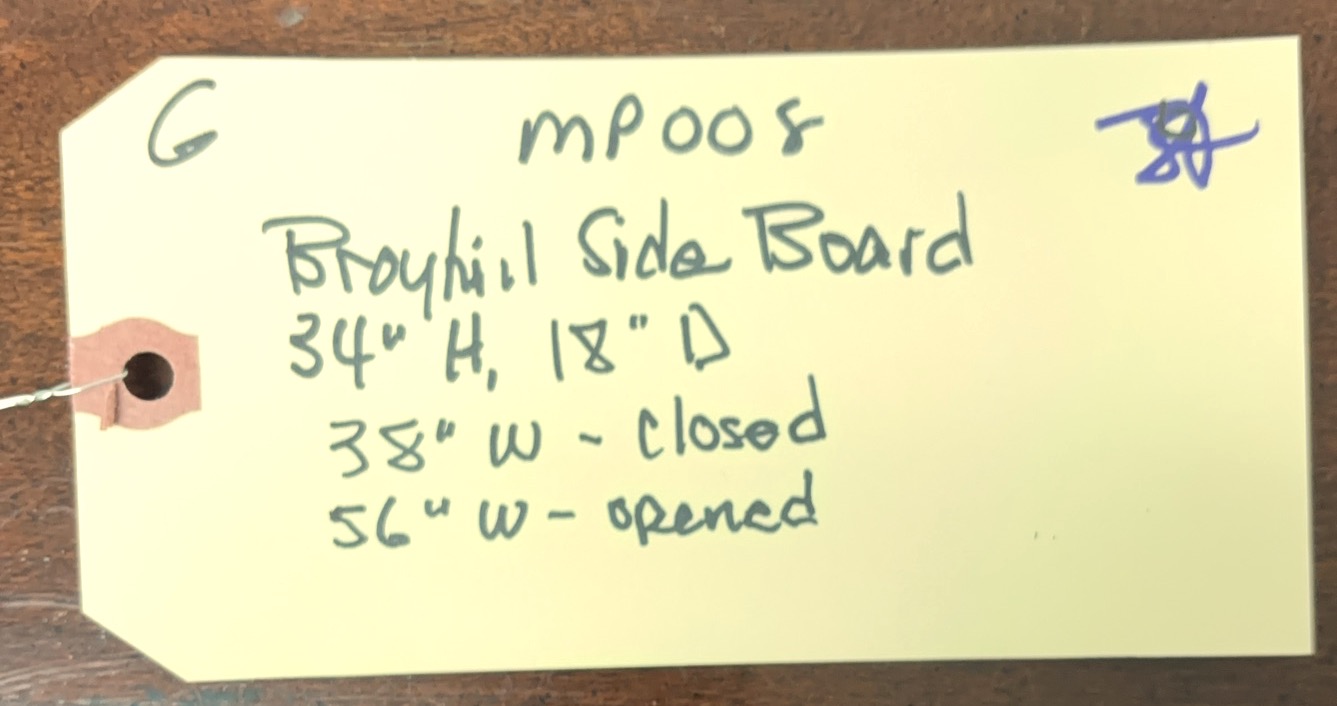 G MP008
Broyhill Side Board
34" H, 18" D
38" W - Closed
56" W - opened